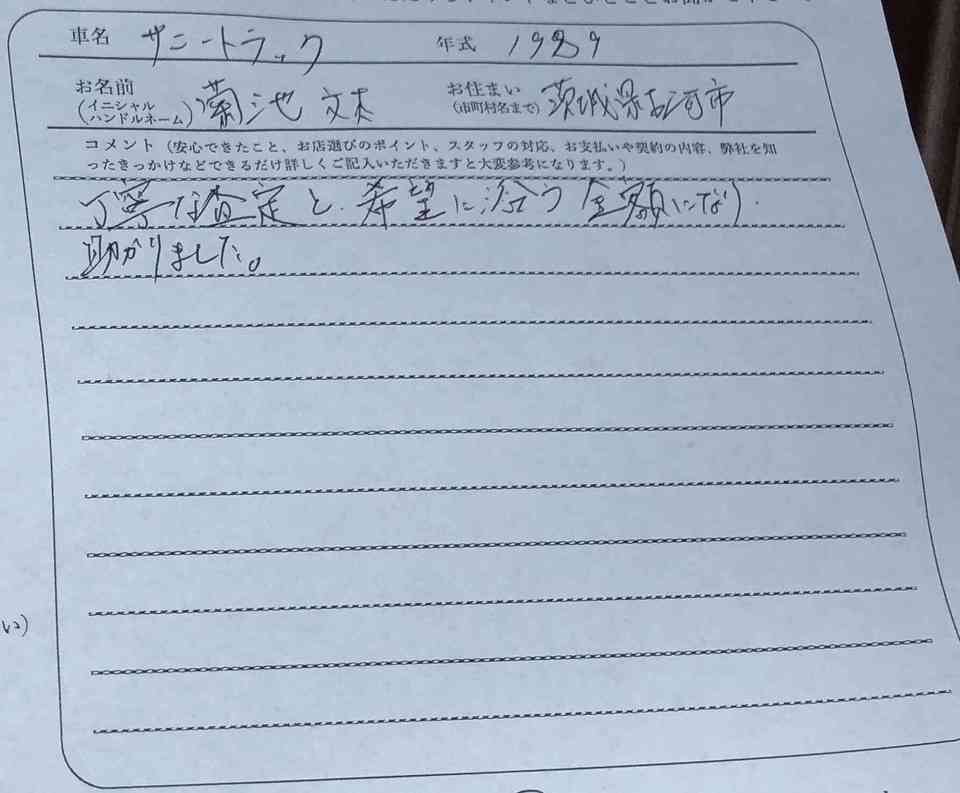 車名 サニートラック 年式 1989
お名前 (イニシャル ハンドルネーム) 菊池 文夫 お住まい (市町村名まで) 茨城県古河市
コメント（安心できたこと、お店選びのポイント、スタッフの対応、お支払いや契約の内容、弊社を知
ったきっかけなどできるだけ詳しくご記入いただきますと大変参考になります。）
丁寧な査定と、希望に沿う金額になり
助かりました。
い）